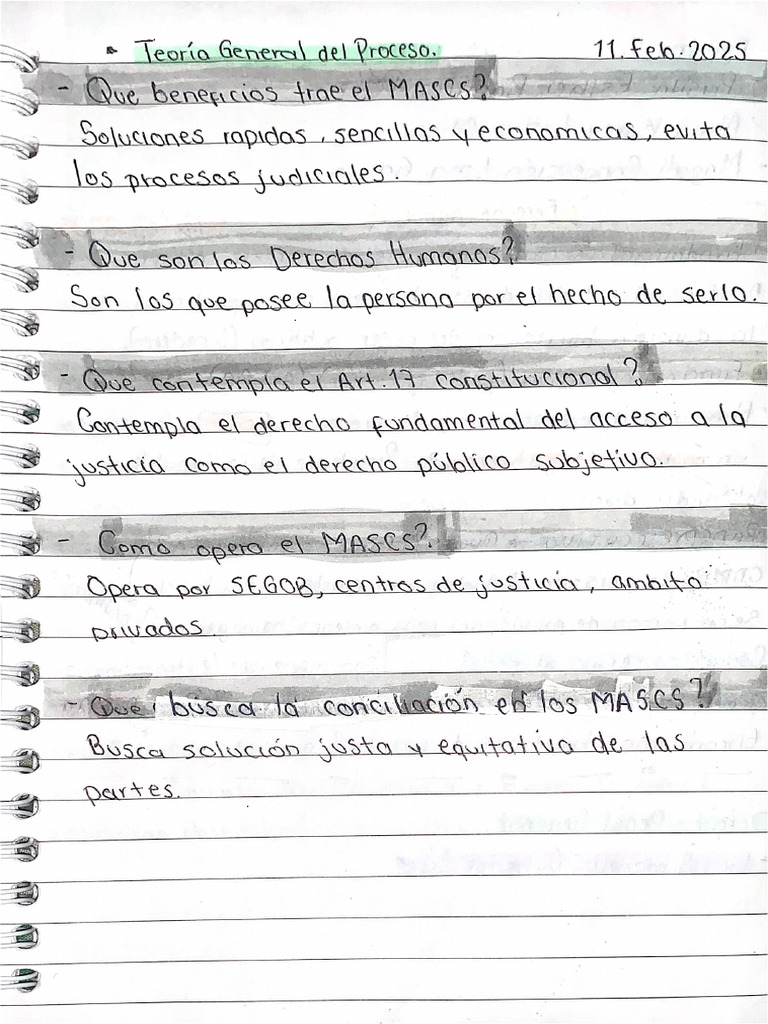 • Teoría General del Proceso. 11. Feb. 2025
- Que beneficios trae el MASCS?
Soluciones rapidas, sencillas y economicas, evita
los procesos judiciales.
- Que son los Derechos Humanos?
Son los que posee la persona por el hecho de serlo.
- Que contempla el Art. 17 constitucional?
Contempla el derecho fundamental del acceso a la
justicia como el derecho público subjetivo.
- Como opera el MASCS?
Opera por SEGOB, centros de justicia, ambito
privados
- Que busca la conciliación en los MASCS?
Busca solución justa y equitativa de las
partes.